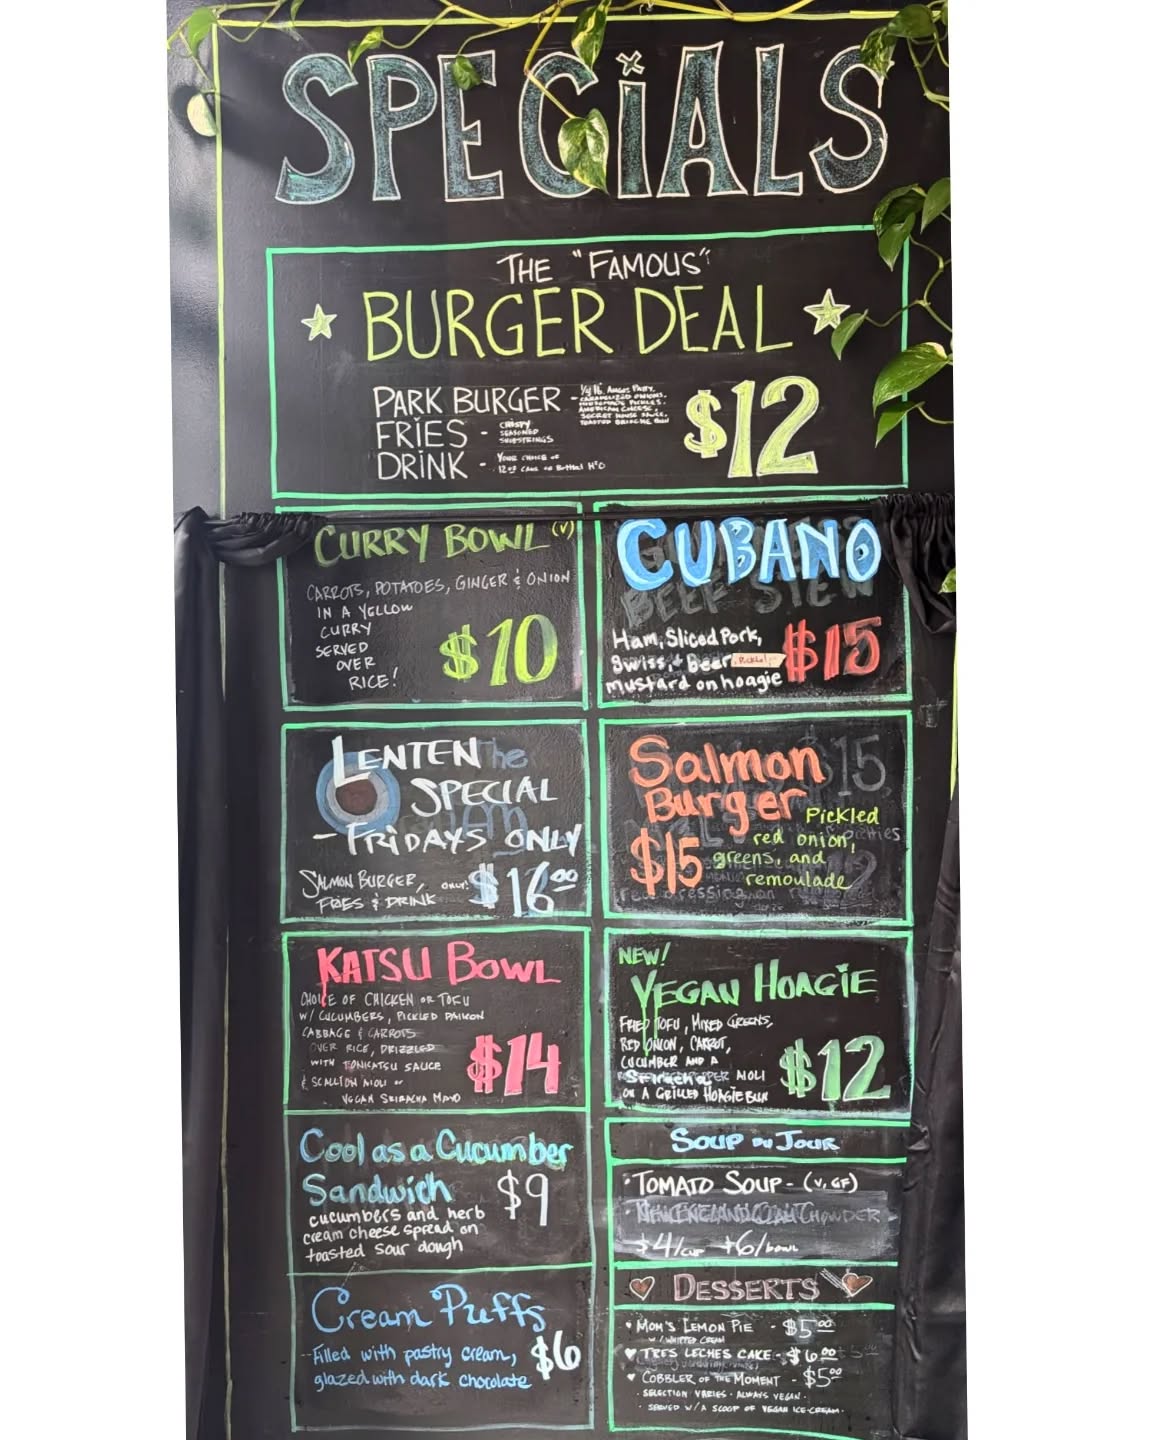 SPECiALS
THE "FAMOUS"
BURGER DEAL
PARK BURGER - 1/4 lb. ANGUS PATTY,
CARAMELIZED ONIONS,
HOUSEMADE PICKLES,
AMERICAN CHEESE,
SECRET HOUSE SAUCE,
TOASTED BRIOCHE BUN
FRIES - CRISPY
SEASONED
SHOESTRINGS
DRINK - YOUR CHOICE OF
12oz CANS OR BOTTLED H2O
$12
CURRY BOWL (V)
CARROTS, POTATOES, GINGER & ONION
IN A YELLOW
CURRY
SERVED
OVER
RICE!
$10
CUBANO
BEEF STEW
Ham, Sliced Pork,
Swiss, + Beer Pickle
mustard on hoagie
$15
LENTEN The
SPECIAL
- FRiDAYS ONLY
SALMON BURGER,
FRIES & DRINK
ONLY: $16.00
Salmon $15
Burger
$15
Pickled
red onion,
greens, and
remoulade
KATSU BOWL
CHOICE OF CHICKEN OR TOFU
W/ CUCUMBERS, PICKLED DAIKON
CABBAGE & CARROTS
OVER RICE, DRIZZLED
WITH TONKATSU SAUCE
& SCALLION AIOLI OR
VEGAN SRIRACHA MAYO
$14
NEW!
VEGAN HOAGIE
FRIED TOFU, MIXED GREENS,
RED ONION, CARROT,
CUCUMBER AND A
Sriracha AIOLI
ON A GRILLED HOAGIE BUN
$12
Cool as a Cucumber
Sandwich $9
cucumbers and herb
cream cheese spread on
toasted sour dough
SOUP DU JOUR
• TOMATO SOUP - (V, GF)
• NEW ENGLAND CLAM CHOWDER
$4/cup $6/bowl
Cream Puffs
$6
filled with pastry cream,
glazed with dark chocolate
DESSERTS
♥ MOM'S LEMON PIE - $5.00
W/ WHIPPED CREAM
♥ TRES LECHES CAKE - $6.00
♥ COBBLER OF THE MOMENT - $5.00
• SELECTION VARIES • ALWAYS VEGAN •
• SERVED W/ A SCOOP OF VEGAN ICE-CREAM •